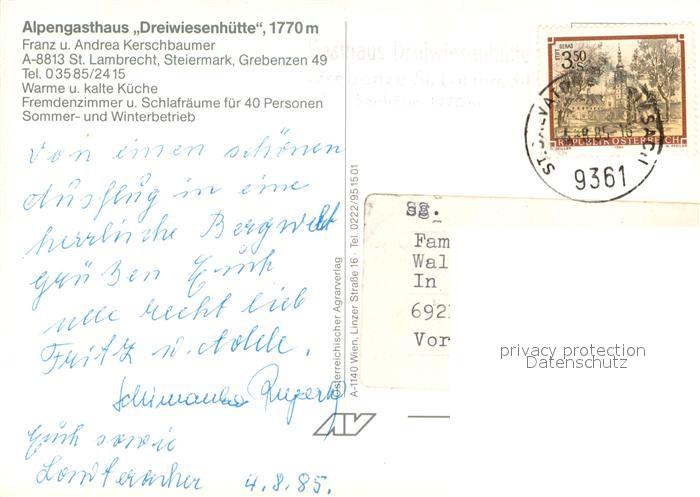 Alpengasthaus „Dreiwiesenhütte“, 1770 m
Franz u. Andrea Kerschbaumer
A-8813 St. Lambrecht, Steiermark, Grebenzen 49
Tel. 03585/2415
Warme u. kalte Küche
Fremdenzimmer u. Schlafräume für 40 Personen
Sommer- und Winterbetrieb
Von einen schönen
Ausflug in eine
herrliche Bergwelt
grüßen Euch
alle recht lieb
Fritz u.
Euch sowie
4.8.85.
Österreichischer Agrarverlag
A-1140 Wien, Linzer Straße 16 · Tel. 0222/951501
AV
Gasthaus Dreiwiesenhütte
Grebenzen St. Lambrecht
Seehöhe 1770 m
GERAS
3.50
REPUBLIK ÖSTERREICH
9361
Sg.
Fam
Wal
In
692
Vor
privacy protection
Datenschutz